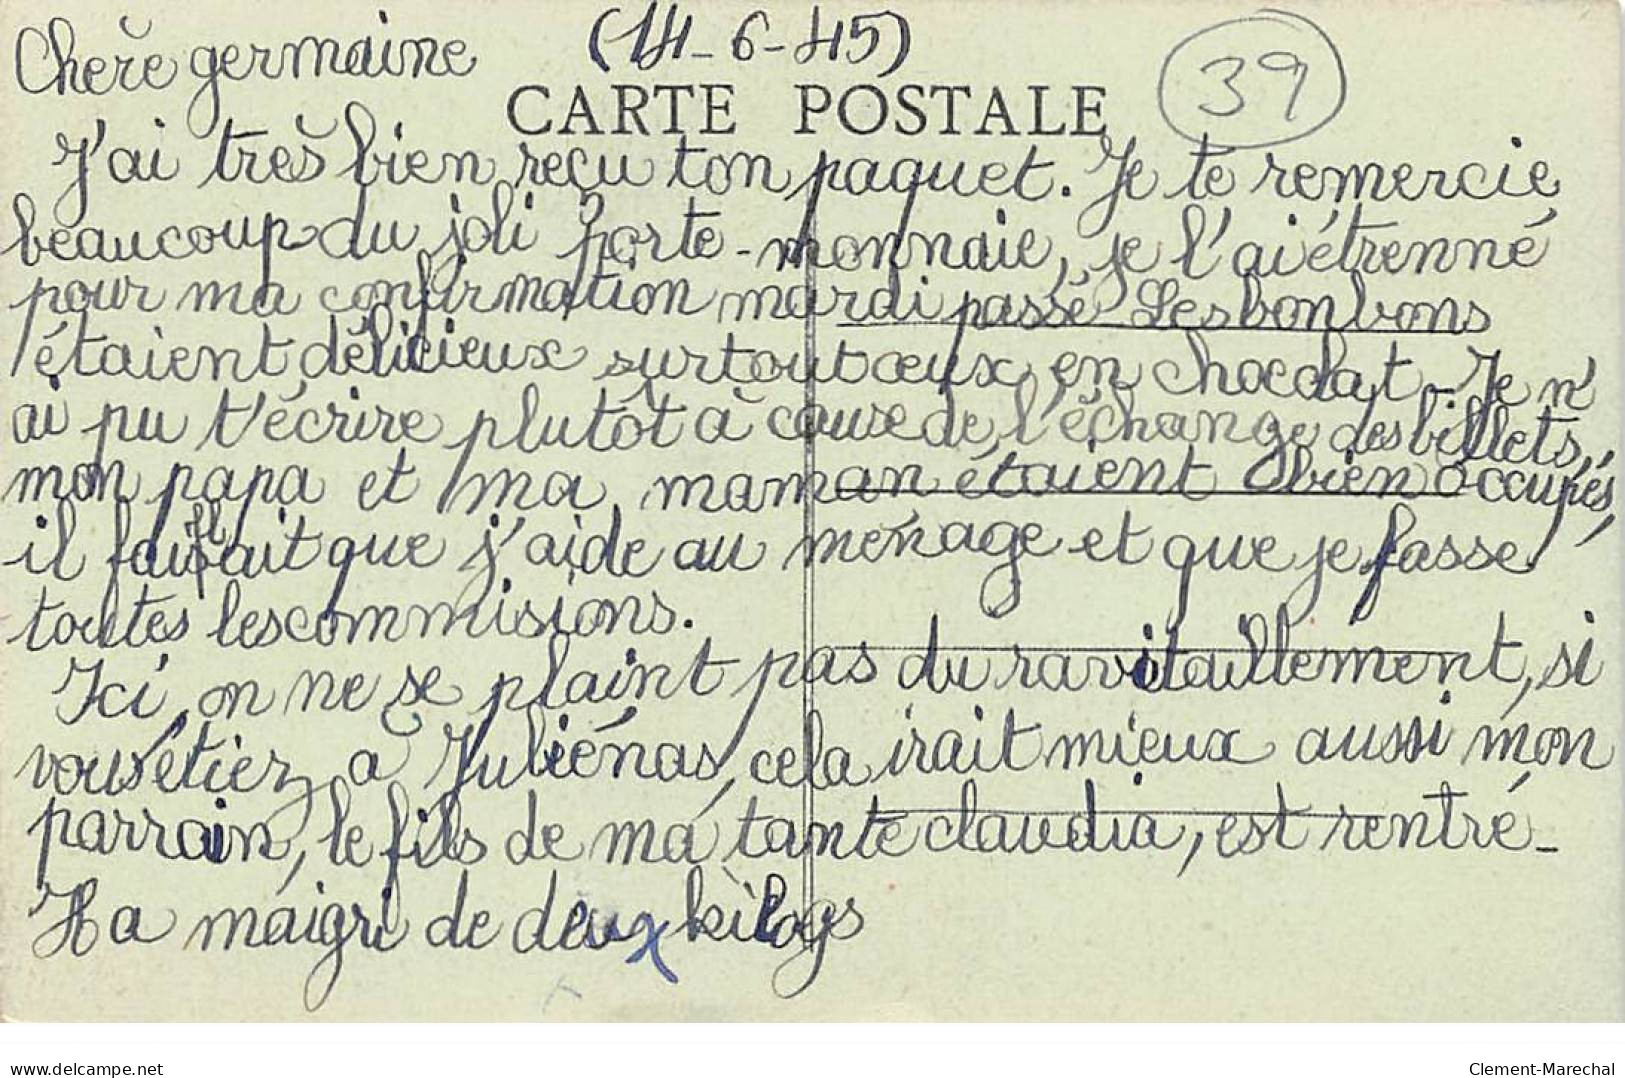 Chère germaine (14-6-45)
CARTE POSTALE 39
J'ai très bien reçu ton paquet. Je te remercie
beaucoup du joli porte-monnaie, je l'ai étrenné
pour ma confirmation mardi passé Les bonbons
étaient délicieux surtout ceux en chocolat - Je n'
ai pu t'écrire plutôt à cause de l'échange des billets,
mon papa et ma maman étaient bien occupés,
il fallait que j'aide au ménage et que je fasse
toutes les commisions.
Ici, on ne se plaint pas du ravitaillement, si
vous étiez à Juliénas, cela irait mieux aussi mon
parrain, le fils de ma tante claudia, est rentré -
Il a maigri de deux kilogs
www.delcampe.net Clement-Marechal